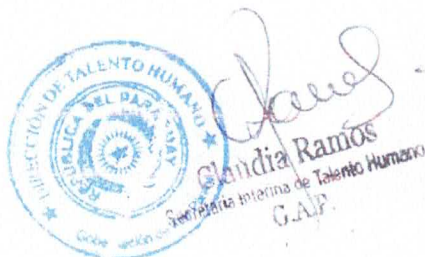 DIRECCIÓN DE TALENTO HUMANO
REPUBLICA DEL PARAGUAY
Claudia Ramos
Secretaria Interina de Talento Humano
G.A.P.